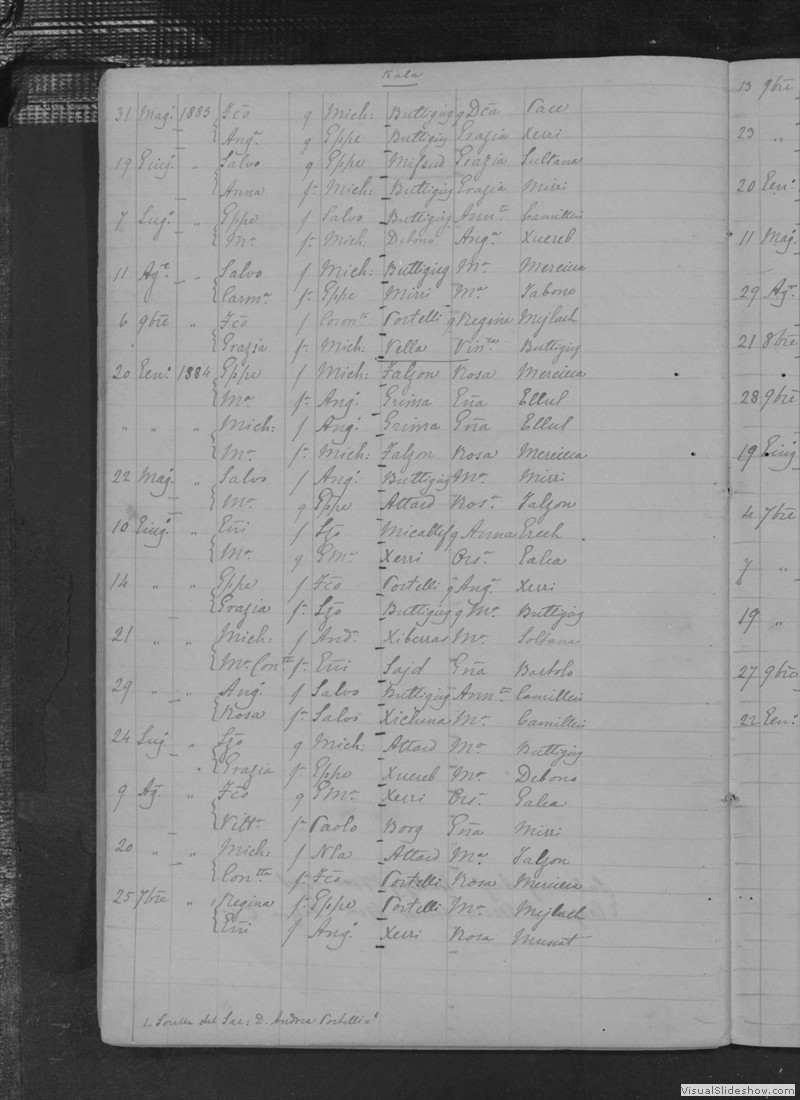 Kala
31 Mag. 1883 Fco q Mich: Buttigieg q Dca Pace
Ang. q Gppe Buttigieg Grazia Xerri
19 Giug. " Salvo q Gppe Mifsud Grazia Sultana
Anna f. Mich: Buttigieg Grazia Mirri
7 Lug. " Gppe f Salvo Buttigieg Ann.ta Camilleri
Ma f. Mich: Debono Ang.a Xuereb
11 Ag.e " Salvo f Mich: Buttigieg Ma Mercieca
Carm.a f. Gppe Mirri Ma Tabono
6 9bre " Fco f Coron.to Portelli q Regina Mejlach
Grazia f. Mich: Vella Vin.za Buttigieg
20 Gen. 1884 Gppe f Mich: Falzon Rosa Mercieca
Ma f. Ang. Grima Gna Ellul
" " " Mich: f Ang. Grima Gna Ellul
Ma f. Mich: Falzon Rosa Mercieca
22 Mag. " Salvo f Ang. Buttigieg Ma Mirri
Ma q Gppe Attard Ros.a Falzon
10 Giug. " Gni f Lzo Micallef q Anna Grech
Ma q GMa Xerri Ors.a Galea
14 " " Gppe f Fco Portelli q Ang. Xerri
Grazia f. Lzo Buttigieg q Ma Buttigieg
21 " " Mich: f And. Xiberras Ma Soltana
Ma Con.tta f. Gni Sajd Gna Bartolo
29 " " Ang. f Salvo Buttigieg Ann.ta Camilleri
Rosa f. Salvo Xicluna Ma Camilleri
24 Lug. " Lzo q Mich: Attard Ma Buttigieg
Grazia f. Gppe Xuereb Ma Debono
9 Ag. " Fco q GMa Xerri Ors.a Galea
Vitt.a f. Paolo Borg Gna Mirri
20 " " Mich: f Nla Attard Ma Falzon
Con.tta f. Fco Portelli Rosa Mercieca
25 7bre " Regina f. Gppe Portelli Ma Mejlach
Gni f Ang. Xerri Rosa Muscat
1. Sorella del Sac: D. Andrea Portelli
13 9bre
23 "
20 Gen.
11 Mag.
29 Ag.
21 8bre
28 9bre
19 Giug.
4 7bre
7 "
19 "
27 9bre
22 Gen.
VisualSlideshow.com